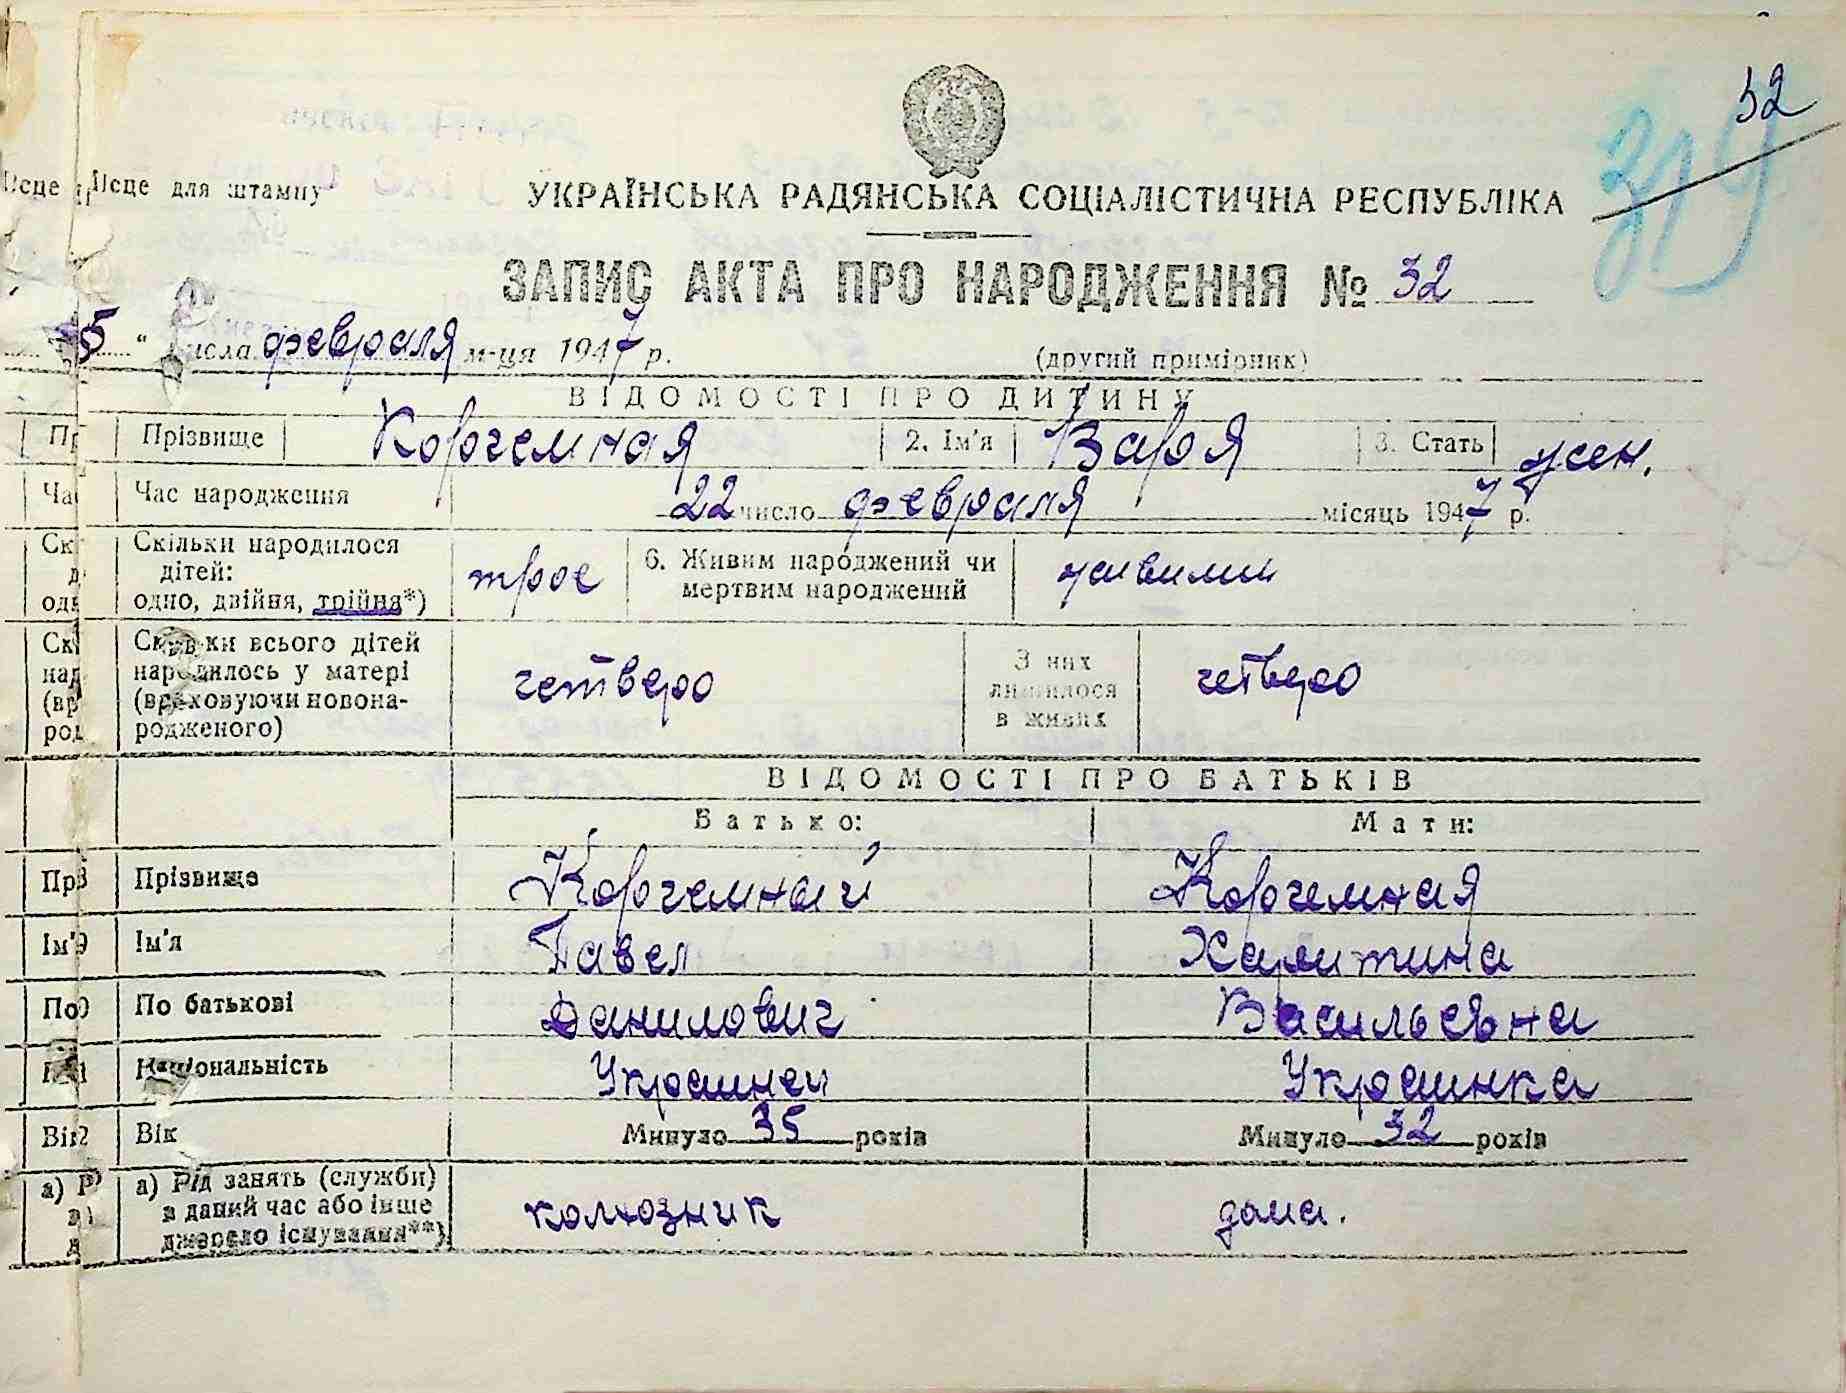 32
319
Місце для штампу
УКРАЇНСЬКА РАДЯНСЬКА СОЦІАЛІСТИЧНА РЕСПУБЛІКА
ЗАПИС АКТА ПРО НАРОДЖЕННЯ № 32
5 " числа февраля м-ця 1947 р.
(другий примірник)
ВІДОМОСТІ ПРО ДИТИНУ
Прізвище Корчемная 2. Ім'я Варя 3. Стать жен.
Час народження 22 число февраля місяць 1947 р.
Скільки народилося
дітей:
одно, двійня, трійня*) трое 6. Живим народжений чи
мертвим народжений живыми
Скільки всього дітей
народилось у матері
(враховуючи новона-
родженого) четверо З них
лишилося
в живих четверо
ВІДОМОСТІ ПРО БАТЬКІВ
Батько: Мати:
Прізвище Корчемный Корчемная
Ім'я Павел Харитина
По батькові Данилович Васильевна
Національність Украинец Украинка
Вік Минуло 35 років Минуло 32 років
а) Рід занять (служби)
в даний час або інше
джерело існування**) колхозник дома.